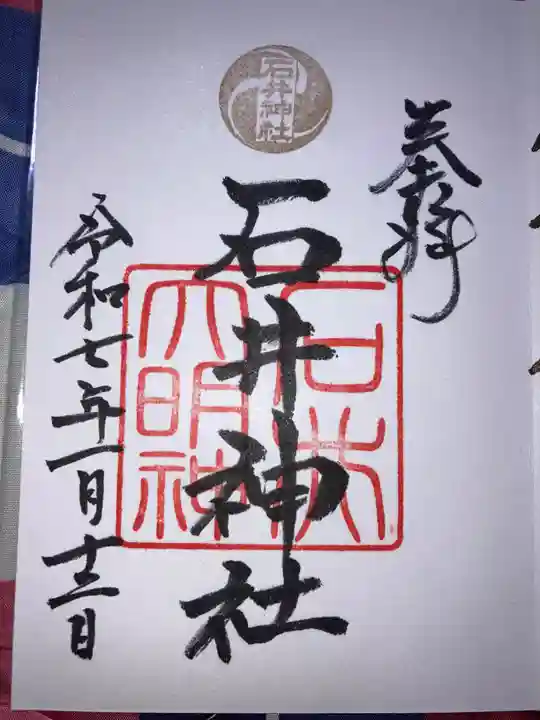 奉拝
石井神社
石井神社
石井
大明神
令和七年一月十三日